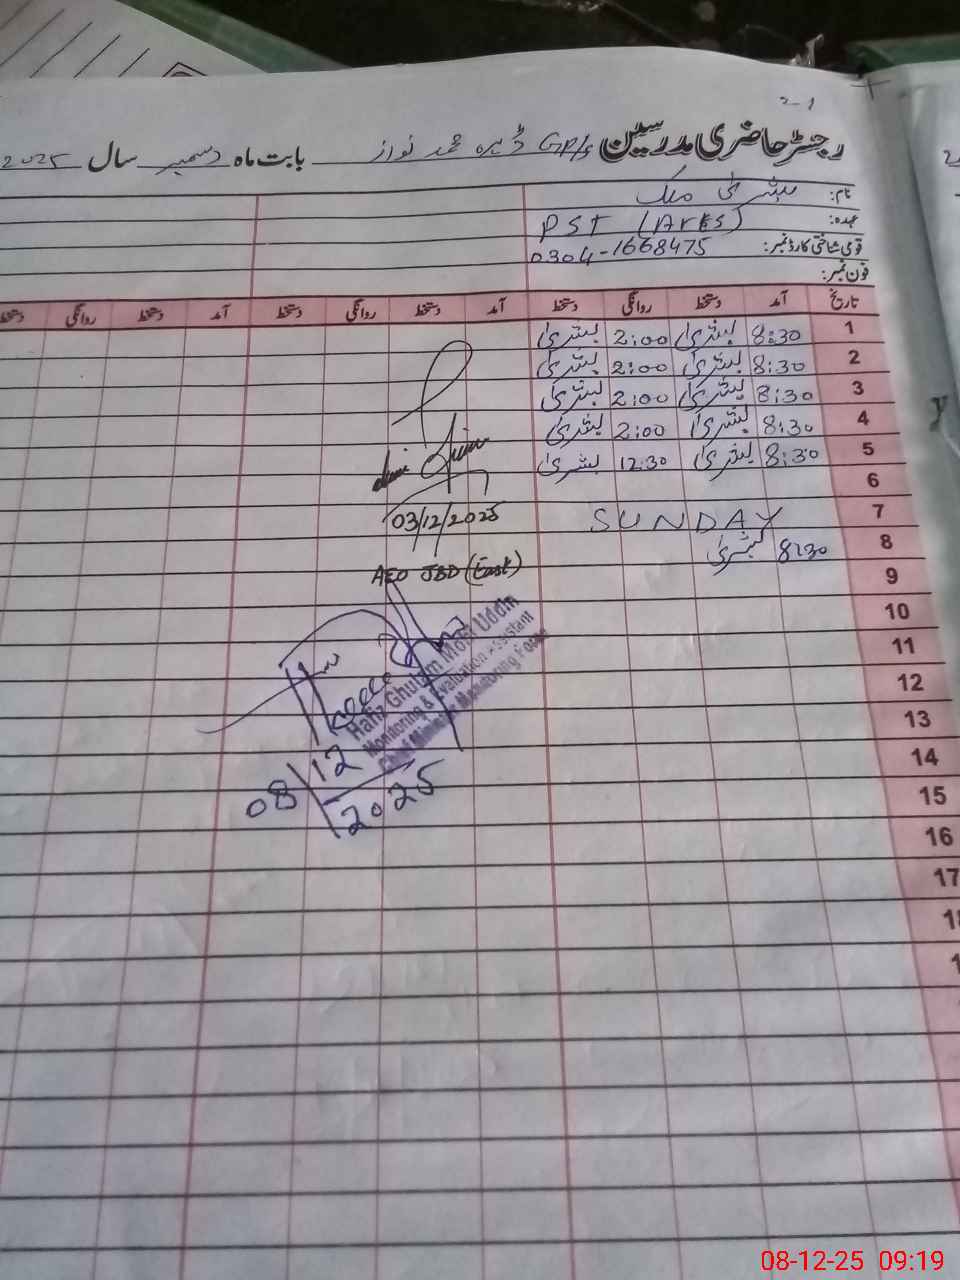 2-1
رجسٹر حاضری مدرسین GP/S ڈیرہ محمد نواز بابت ماہ دسمبر سال 2025
نام: بشریٰ ملک
عہدہ: PST (Arts)
قومی شناختی کارڈ نمبر: 0304-1668475
فون نمبر:
تاریخ آمد دستخط روانگی دستخط آمد دستخط روانگی دستخط آمد دستخط روانگی دستخط
1 8:30 بشریٰ 2:00 بشریٰ
2 8:30 بشریٰ 2:00 بشریٰ
3 8:30 بشریٰ 2:00 بشریٰ
4 8:30 بشریٰ 2:00 بشریٰ
5 8:30 بشریٰ 12:30 بشریٰ
6
7 SUNDAY
8 8:30 بشریٰ
9
10
11
12
13
14
15
16
17
03/12/2025
AEO JBD (East)
Hafiz Ghulam Mohi Uddin
Monitoring & Evaluation Assistant
Chief Minister Monitoring Force
08/12/2025
08-12-25 09:19